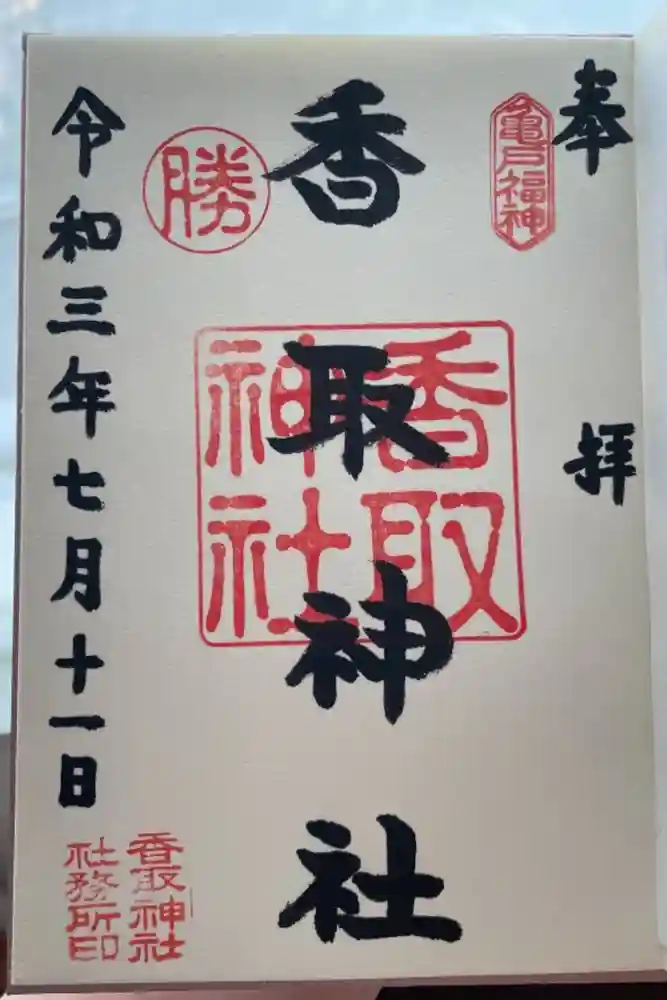 奉拝
亀戸福神
香取神社
香取
神社
勝
令和三年七月十一日
香取神社
社務所印